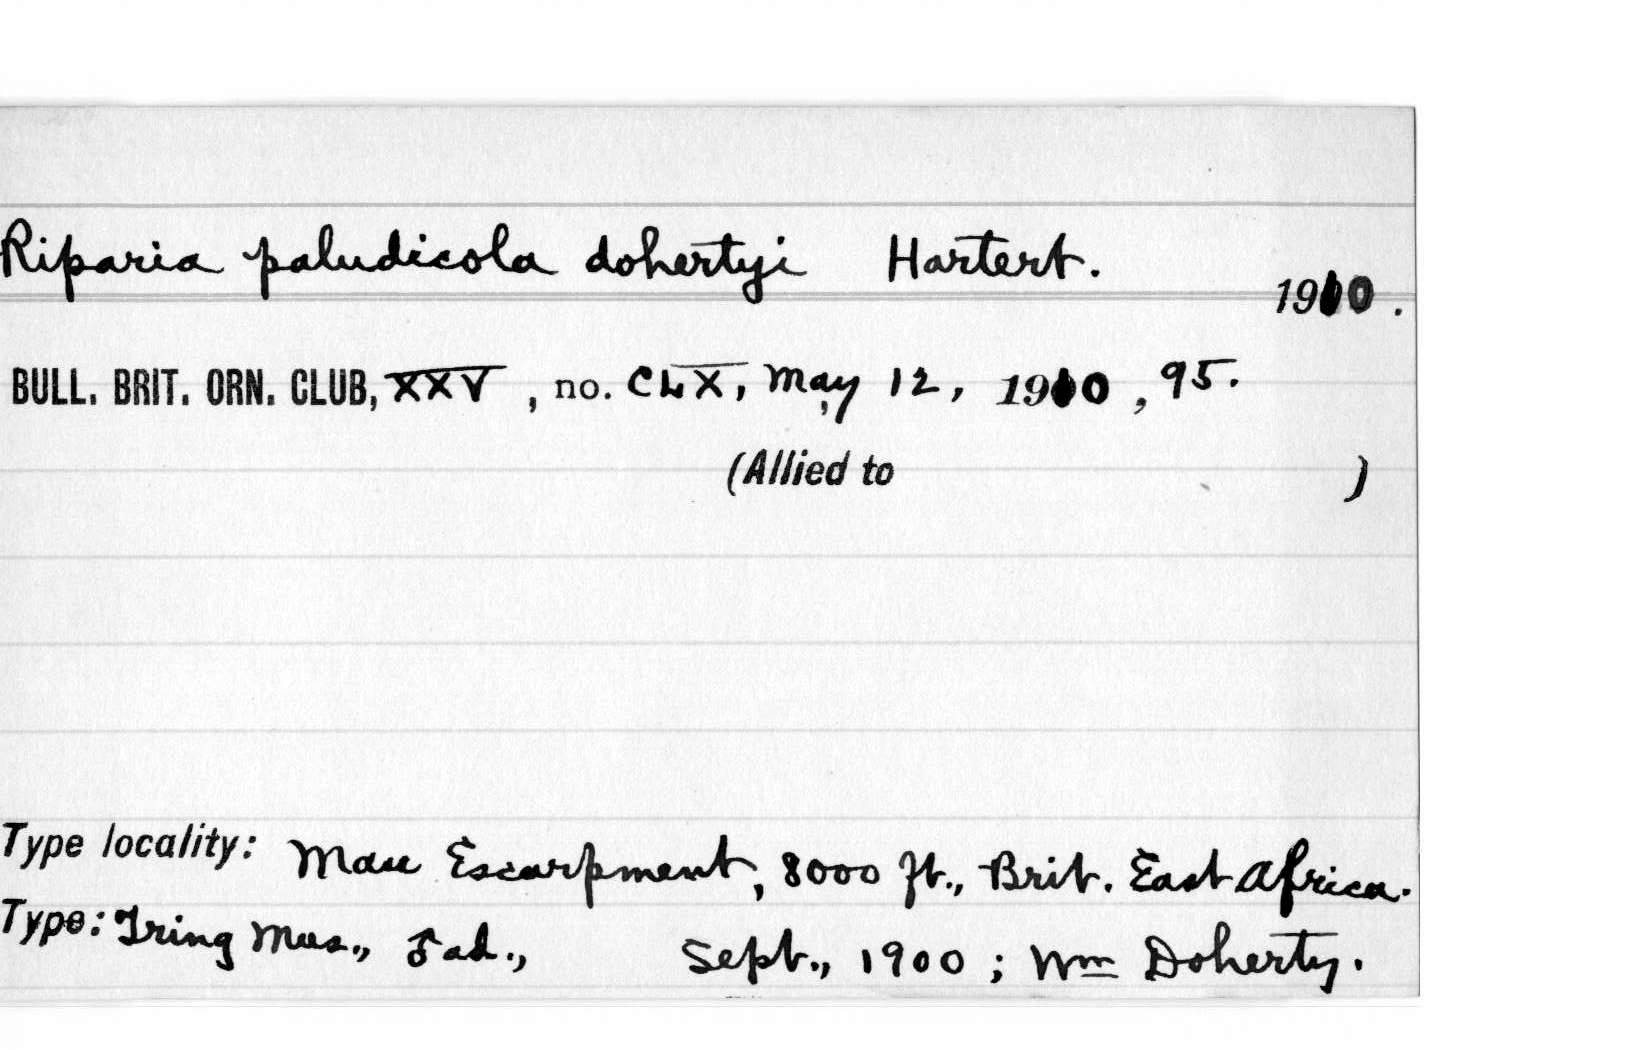 Riparia paludicola dohertyi Hartert.
1910.
BULL. BRIT. ORN. CLUB, XXV, no. CLX, May 12, 1910, 95.
(Allied to )
Type locality: Mau Escarpment, 8000 ft., Brit. East Africa.
Type: Tring Mus., ♂ ad., Sept., 1900; Wm Doherty.